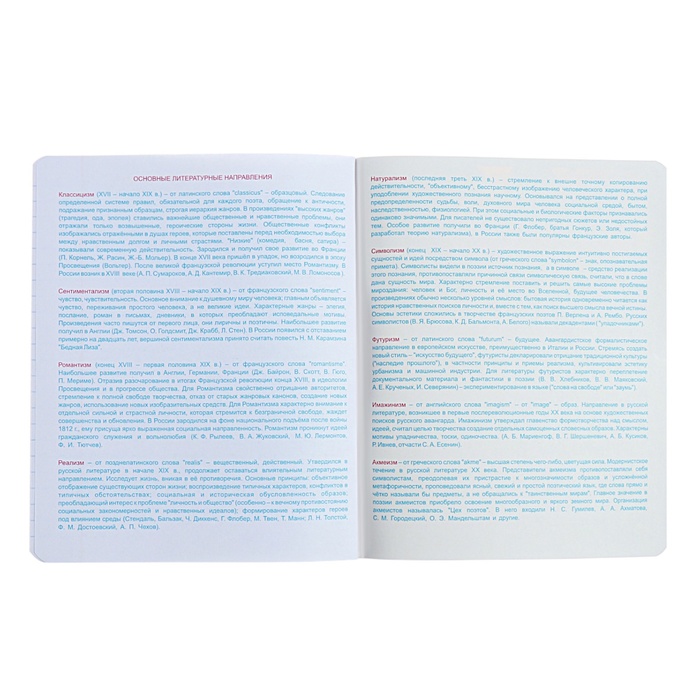 ОСНОВНЫЕ ЛИТЕРАТУРНЫЕ НАПРАВЛЕНИЯ
Классицизм (XVII – начало XIX в.) – от латинского слова "classicus" – образцовый. Следование
определенной системе правил, обязательной для каждого поэта, обращение к античности,
подражание признанным образцам, строгая иерархия жанров. В произведениях "высоких жанров"
(трагедия, ода, эпопея) ставились важнейшие общественные и нравственные проблемы, они
отражали только возвышенные, героические стороны жизни. Общественные конфликты
изображались отражёнными в душах героев, которые поставлены перед необходимостью выбора
между нравственным долгом и личными страстями. "Низкие" (комедия, басня, сатира) –
показывали современную действительность. Зародился и получил своё развитие во Франции
(П. Корнель, Ж. Расин, Ж.-Б. Мольер). В конце XVII века пришёл в упадок, но возродился в эпоху
Просвещения (Вольтер). После великой французской революции уступил место Романтизму. В
России возник в XVIII веке (А. П. Сумароков, А. Д. Кантемир, В. К. Тредиаковский, М. В. Ломоносов).
Сентиментализм (вторая половина XVIII – начало XIX в.) – от французского слова "sentiment" –
чувство, чувствительность. Основное внимание к душевному миру человека; главным объявляется
чувство, переживания простого человека, а не великие идеи. Характерные жанры – элегия,
послание, роман в письмах, дневники, в которых преобладают исповедальные мотивы.
Произведения часто пишутся от первого лица, они лиричны и поэтичны. Наибольшее развитие
получил в Англии (Дж. Томсон, О. Голдсмит, Дж. Крабб, Л. Стен). В России появился с отставанием
примерно на двадцать лет, вершиной сентиментализма принято считать повесть Н. М. Карамзина
"Бедная Лиза".
Романтизм (конец XVIII – первая половина XIX в.) – от французского слова "romantisme".
Наибольшее развитие получил в Англии, Германии, Франции (Дж. Байрон, В. Скотт, В. Гюго,
П. Мериме). Отразив разочарование в итогах Французской революции конца XVIII, в идеологии
Просвещения и в прогрессе общества. Для Романтизма свойственно отрицание авторитетов,
стремление к полной свободе творчества, отказ от старых жанровых канонов, создание новых
жанров, использование новых изобразительных средств. Для Романтизма характерно внимание к
отдельной сильной и страстной личности, которая стремится к безграничной свободе, жаждет
совершенства и обновления. В России зародился на фоне национального подъёма после войны
1812 г., ему присуща ярко выраженная социальная направленность. Романтизм проникнут идеей
гражданского служения и вольнолюбия (К. Ф. Рылеев, В. А. Жуковский, М. Ю. Лермонтов,
Ф. И. Тютчев).
Реализм – от позднелатинского слова "realia" – вещественный, действенный. Утвердился в
литературе в начале XIX в., продолжает оставаться влиятельным литературным
направлением. Исследует жизнь, вникая в её противоречия. Основные принципы: объективное
отображение существующих сторон жизни; воспроизведение типичных характеров, конфликтов в
типичных обстоятельствах; социальная и историческая обусловленность образов,
преобладающий интерес к проблеме "личность и общество" (особенно – к вечному противостоянию
социальных закономерностей и нравственных идеалов); формирование характеров героев
под влиянием среды (Стендаль, Бальзак, Ч. Диккенс, Г. Флобер, М. Твен, Т. Манн, Л. Н. Толстой,
Ф. М. Достоевский, А. П. Чехов).
Натурализм (последняя треть XIX в.) – стремление к внешне точному копированию
действительности, "объективному", бесстрастному изображению человеческого характера, при
уподоблении художественного познания научному. Основывался на представлении о полной
предопределенности судьбы, воли, духовного мира человека социальной средой, бытом,
наследственностью, физиологией. При этом социальные и биологические факторы принимались
одинаково значимыми. Для писателей не существовало непригодных сюжетов или недостойных
тем. Особое развитие получило во Франции (Г. Флобер, братья Гонкур, Э. Золя, который
разработал теорию натурализма), в России также были популярны французские авторы.
Символизм (конец XIX – начало XX в.) – художественное выражение интуитивно постигаемых
сущностей и идей посредством символа (от греческого слова "symbolon" – знак, опознавательная
примета). Символисты видели в поэзии источник познания, а в символе – средство реализации
этого познания, противопоставляли личное символическому знанию, считали, что в символе
дана сущность мира. Характерно стремление поставить и решать самые высокие проблемы
мироздания: человек и Бог, личность и её место во Вселенной, будущее человечества. В
произведениях обычно несколько уровней смыслов: бытовая история одновременно читается как
история нравственных поисков личности и, вместе с тем, как поиск высшего смысла вечной истины.
Основы эстетики сложились в творчестве французских поэтов П. Верлена и А. Рембо. Русских
символистов (В. Я. Брюсова, К. Д. Бальмонта, А. Белого) называли декадентами ("упадочниками").
Футуризм – от латинского слова "futurum" – будущее. Авангардистское формалистическое
направление в европейском искусстве, преимущественно в Италии и России. Стремясь создать
новый стиль – "искусство будущего", футуристы декларировали отрицание традиционной культуры
("наследия прошлого"), в частности принципы и приемы реализма, культивировали эстетику
урбанизма и машинной индустрии. Для литературы футуристов характерно переплетение
документального материала и фантастики в поэзии (В. В. Хлебников, В. В. Маяковский,
А. Е. Крученых, И. Северянин) – экспериментирование в языке ("слова на свободе" или "заумь").
Имажинизм – от английского слова "imagism" – от "image" – образ. Направление в русской
литературе, возникшее в первых послереволюционные годы XX века на основе художественных
поисков русского авангарда. Имажинизм утверждал главенство формотворчества над смыслом,
идеей, считал целью творчества создание отдельного словесного образа. Характерны
мотивы упадничества, тоски, одиночества. (А. Б. Мариенгоф, В. Г. Шершеневич, А. Б. Кусиков,
Р. Ивнев, отчасти С. А. Есенин).
Акмеизм – от греческого слова "akme" – высшая степень чего-либо, цветущая сила. Модернистское
течение в русской литературе XX века. Представители акмеизма противопоставляли себя
символистам, преодолевая их пристрастие к многозначности образов и усложнённой
метафоричности, проповедовали ясный, свежий и простой поэтический язык, где слова прямо и
чётко называли бы предметы, а не обращались к "таинственным мирам". Главное значение в
поэзии акмеистов приобрело освоение многообразного и яркого земного мира. Организация
акмеистов называлась "Цех поэтов". В него входили Н. С. Гумилев, А. А. Ахматова,
С. М. Городецкий, О. Э. Мандельштам и другие.